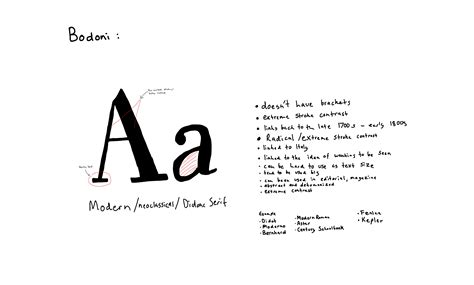 Bodoni:
Aa
Modern/neoclassical/Didone Serif
• doesn't have brackets
• extreme stroke contrast
• links back to the late 1700s - early 1800s
• Radical/extreme stroke contrast
• linked to Italy
• linked to the idea of wanting to be seen
• can be hard to use as text size
• tend to be used big
• can be used in editorial, magazine
• abstract and dehumanized
• extreme contrast
Example
• Didot
• Moderno
• Bernhard
• Modern Roman
• Aster
• Century Schoolbook
• Fenice
• Kepler